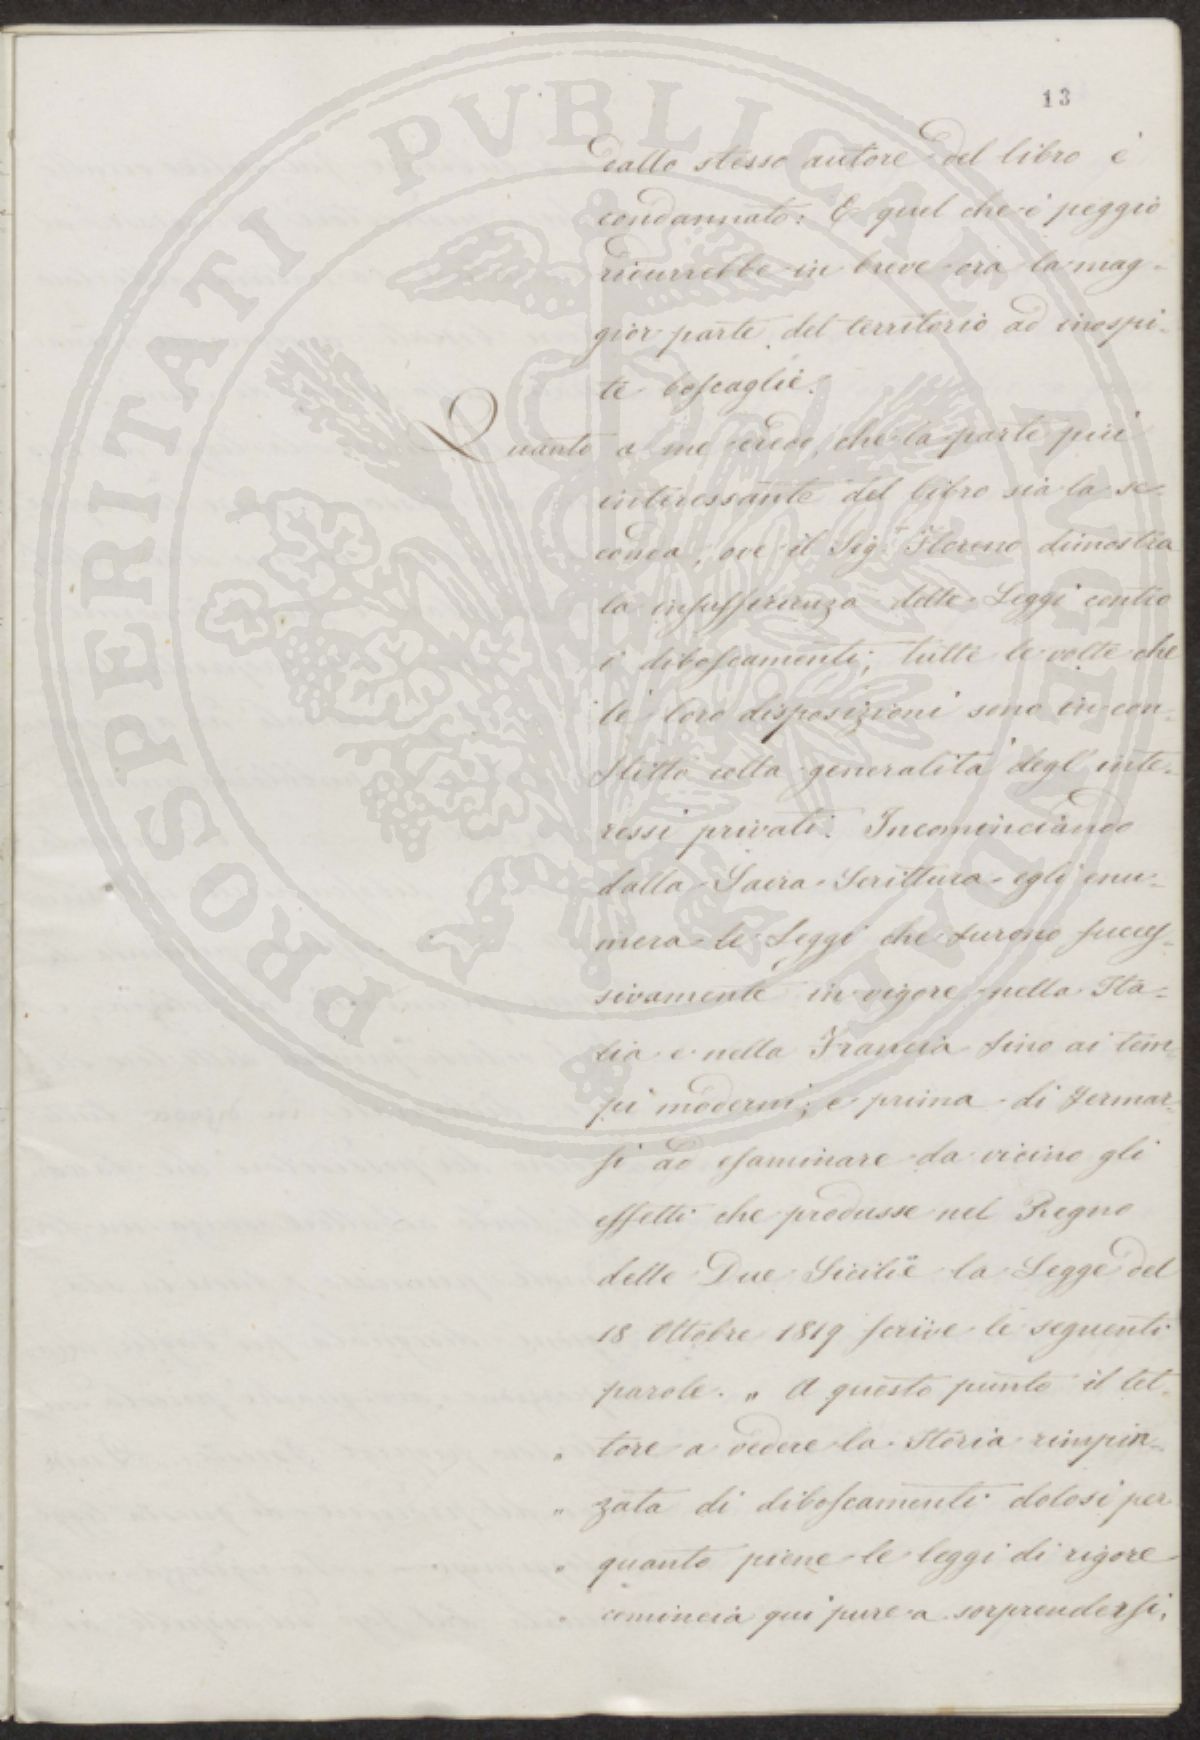 13
dallo stesso autore del libro è
condannato: E quel che è peggio
ridurrebbe in breve ora la mag-
gior parte del territorio ad inospi-
te boscaglie.
Quanto a me credo, che la parte più
interessante del libro sia la se-
conda, ove il Sig.r Floreno dimostra
la insufficienza delle Leggi contro
i diboscamenti; tutte le volte che
le loro disposizioni sono in con-
flitto colla generalità degl'inte-
ressi privati. Incominciando
dalla Sacra Scrittura egli enu-
mera le Leggi che furono succes-
sivamente in vigore nella Ita-
lia e nella Francia fino ai tem-
pi moderni; e prima di fermar-
si ad esaminare da vicino gli
effetti che produsse nel Regno
delle Due Sicilie la Legge del
18 Ottobre 1819 scrive le seguenti
parole. „ A questo punto il let-
„ tore a vedere la Storia rimpin-
„ zata di diboscamenti dolosi per
„ quanto piene le leggi di rigore
„ comincia qui pure a sorprendersi,
PROSPERITATI PVBLICAE AVGENDAE